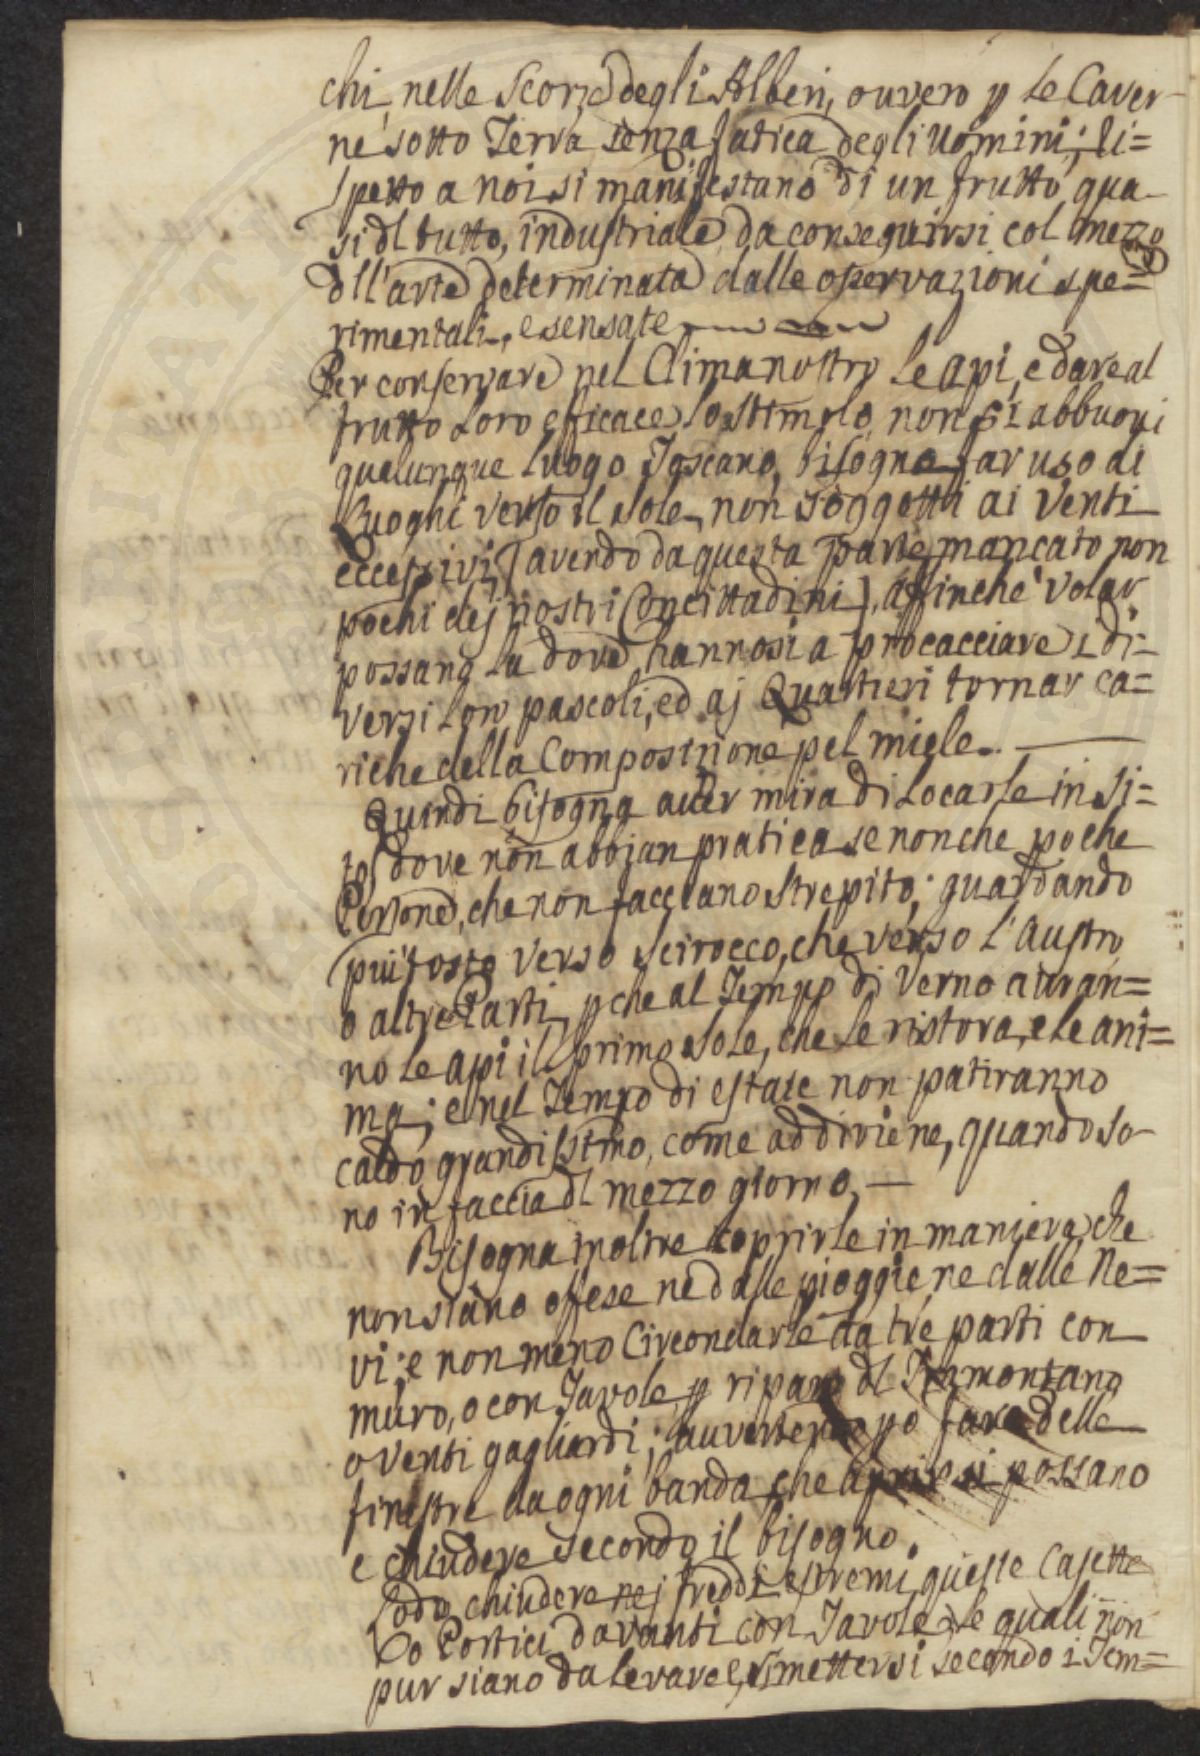 chi, nelle Scorze degli Alberi, ouvero p le Caver-
ne sotto Terra senza fatica degli Uomini; ri=
spetto a noi si manifestano di un frutto qua-
si dl tutto, industriale, da conseguirsi col mezzo
dll'arte determinata dalle osservazioni spe=
rimentali, e sensate
Per conservare nel Clima nostro le api, e dare al
frutto loro efficace lo stimolo, non si abbuoni
qualunque luogo Toscano, bisogna far uso di
Luoghi verso il sole, non soggetti ai Venti
eccessivi, (avendo da questa parte mancato non
pochi dej nostri Concittadini), affinchè volar
possano la dove hannosi a procacciare i di-
versi loro pascoli, ed aj Quartieri tornar ca=
riche della Composizione pel miele.
Quindi bisogna aver mira di locarle in si=
to, dove non abbian pratica se non che poche
Persone, che non facciano strepito; guardando
piu tosto verso Scirocco, che verso l'Austro
o altre Parti, p che al Tempo di Verno auran=
no le api il primo sole, che le ristora, e le ani=
ma; e nel Tempo di estate non patiranno
caldo grandissimo, come addiviene, quando so-
no in faccia dl mezzo giorno,
Bisogna inoltre coprirle in maniera che
non siano offese ne dalle pioggie ne dalle Ne=
vi; e non meno Circondarle da tre parti con
muro, o con Tavole, p riparo dl Tramontano
o venti gagliardi; auvertendo po fare delle
finestre da ogni banda che aprir si possano
e chiudere secondo il bisogno.
Lodo chiudere nej freddi estremi queste Casette
o Portici davanti con Tavole, le quali non
pur siano da levare e rimettersi secondo i Tem=